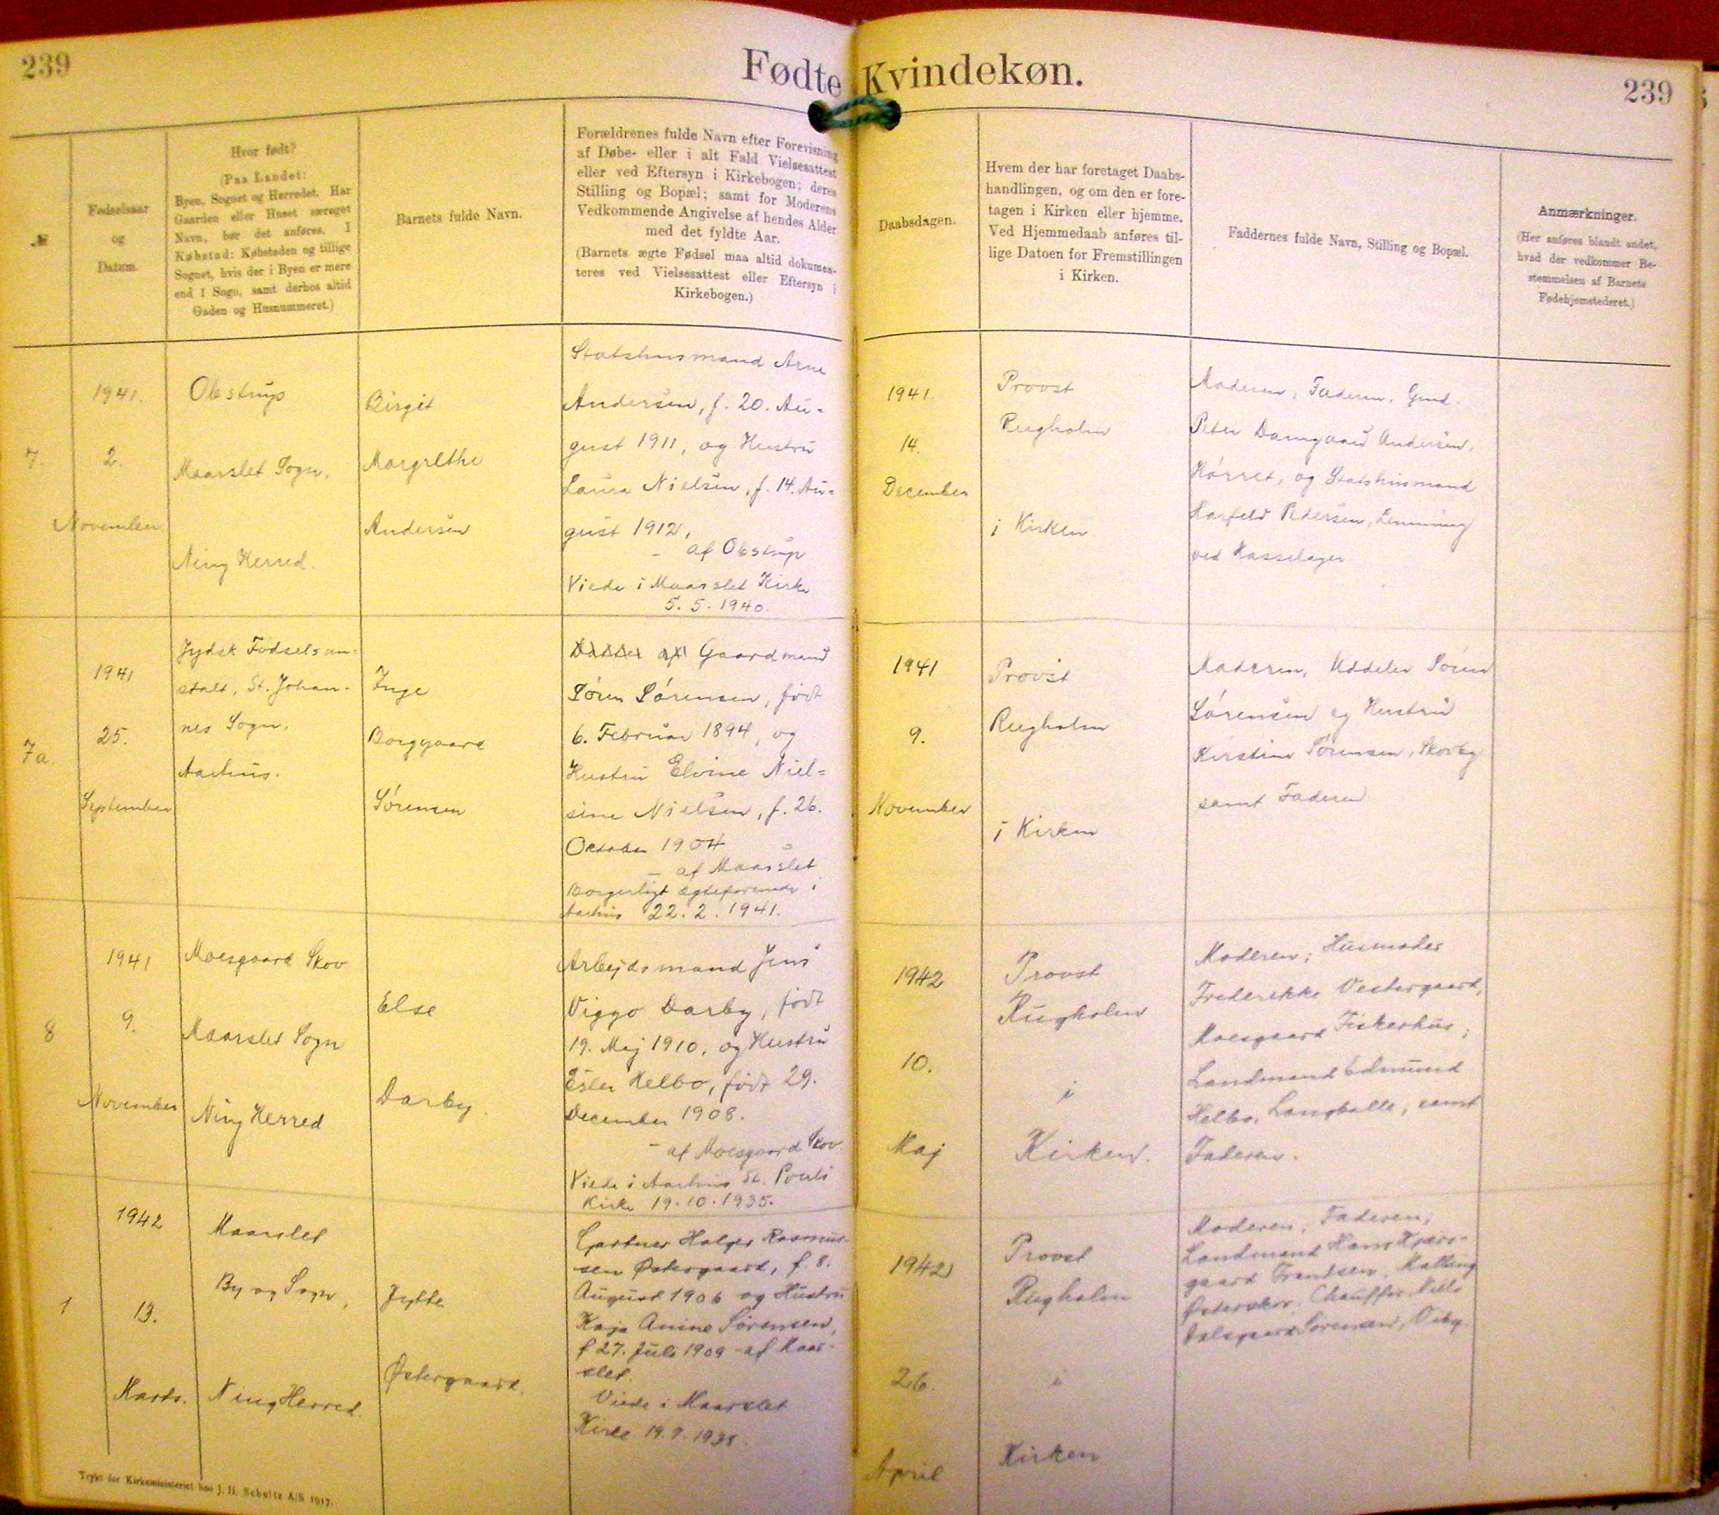 239
Fødte Kvindekøn.
239
№
Fødselsaar
og
Datum.
Hvor født?
(Paa Landet:
Byen, Sognet og Herredet. Har
Gaarden eller Huset særeget
Navn, bør det anføres. I
Købstad: Købstaden og tillige
Sognet, hvis der i Byen er mere
end 1 Sogn, samt derhos altid
Gaden og Husnummeret.)
Barnets fulde Navn.
Forældrenes fulde Navn efter Forevisning
af Døbe- eller i alt Fald Vielsesattest
eller ved Eftersyn i Kirkebogen; deres
Stilling og Bopæl; samt for Moderens
Vedkommende Angivelse af hendes Alder
med det fyldte Aar.
(Barnets ægte Fødsel maa altid dokumen-
teres ved Vielsesattest eller Eftersyn i
Kirkebogen.)
Daabsdagen.
Hvem der har foretaget Daabs-
handlingen, og om den er fore-
tagen i Kirken eller hjemme.
Ved Hjemmedaab anføres til-
lige Datoen for Fremstillingen
i Kirken.
Faddernes fulde Navn, Stilling og Bopæl.
Anmærkninger.
(Her anføres blandt andet,
hvad der vedkommer Be-
stemmelsen af Barnets
Fødehjemstederet.)
7
1941.
2.
November
Obstrup
Maarslet Sogn,
Ning Herred.
Birgit
Margrethe
Andersen
Statshusmand Arne
Andersen, f. 20. Au-
gust 1911, og Hustru
Laura Nielsen, f. 14. Au-
gust 1912,
- af Obstrup
Viede i Maarslet Kirke
5. 5. 1940.
1941.
14.
December
Provst
Rugholm
i Kirken
Moderen, Faderen, Gmd.
Peter Damgaard Andersen,
Hørret, og Statshusmand
Pedersen,
ved Hasselager
7a
1941
25.
September
Jydsk Fødselsan-
stalt, St. Johan-
nes Sogn,
Aarhus.
Inge
Borggaard
Sørensen
af Gaardmand
Søren Sørensen, født
6. Februar 1894, og
Hustru Elvine Niel-
sine Nielsen, f. 26.
October 1904
- af Maarslet
Borgerligt ægteforenede i
Aarhus 22. 2. 1941.
1941
9.
November
Provst
Rugholm
i Kirken
Moderen, Uddeler Søren
Sørensen og Hustru
Kirstine Sørensen, Skovby
samt Faderen
8
1941
9.
November
Moesgaard Skov
Maarslet Sogn
Ning Herred
Else
Darby.
Arbejdsmand Jens
Viggo Darby, født
19. Maj 1910, og Hustru
Ester Helbo, født 29.
December 1908.
- af Moesgaard Skov.
Viede i Aarhus St. Pouls
Kirke 19.10.1935.
1942
10.
Maj
Provst
Rugholm
i
Kirken.
Moderen; Husmoder
Frederikke Vestergaard,
Moesgaard Fiskerhus;
Landmand Edmund
Helbo, Langballe, samt
Faderen.
1
1942
13.
Marts.
Maarslet
By og Sogn,
Ning Herred.
Jytte
Østergaard.
Gartner Holger Rasmus-
sen Østergaard, f. 8.
August 1906 og Hustru
Kaja Anine Sørensen,
f 27. Juli 1909 - af Maar-
slet.
Viede i Maarslet
Kirke
1942
26.
April
Provst
Rugholm
i
Kirken
Moderen; Faderen;
Landmand Hans Kjærs-
gaard Frandsen, Malling
Chauffør Niels
Dalsgaard Sørensen, Viby.
Trykt for Kirkeministeriet hos J. H. Schultz A/S 1917.